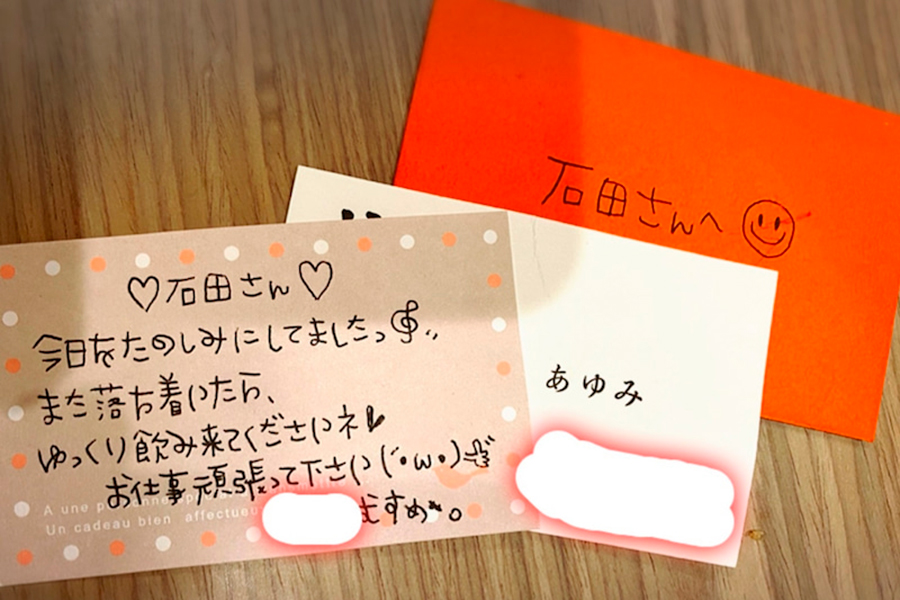 石田さんへ
♡石田さん♡
今日をたのしみにしてましたっ
また落ち着いたら、
ゆっくり飲み来てくださいネ
お仕事頑張って下さい(´•ω•)
むすめ
あゆみ
A une
Un cadeau bien affectueu